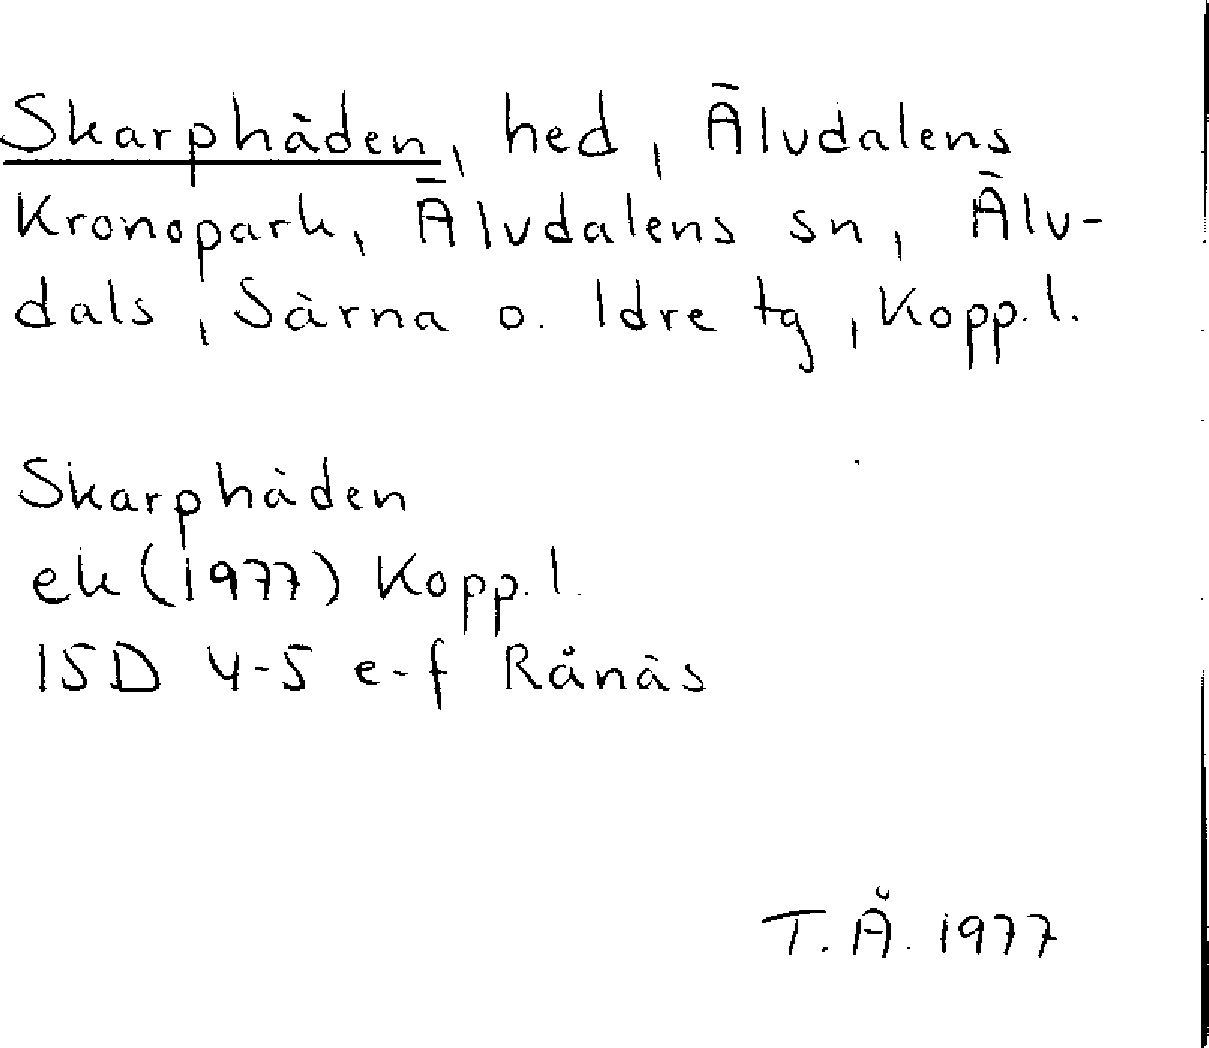 Skarphäden, hed, Älvdalens
Kronopark, Älvdalens sn, Älv-
dals, Särna o. Idre tg, Kopp. l.
Skarphäden
ek (1977) Kopp. l.
15D 4-5 e-f Rånäs
T. Å. 1977